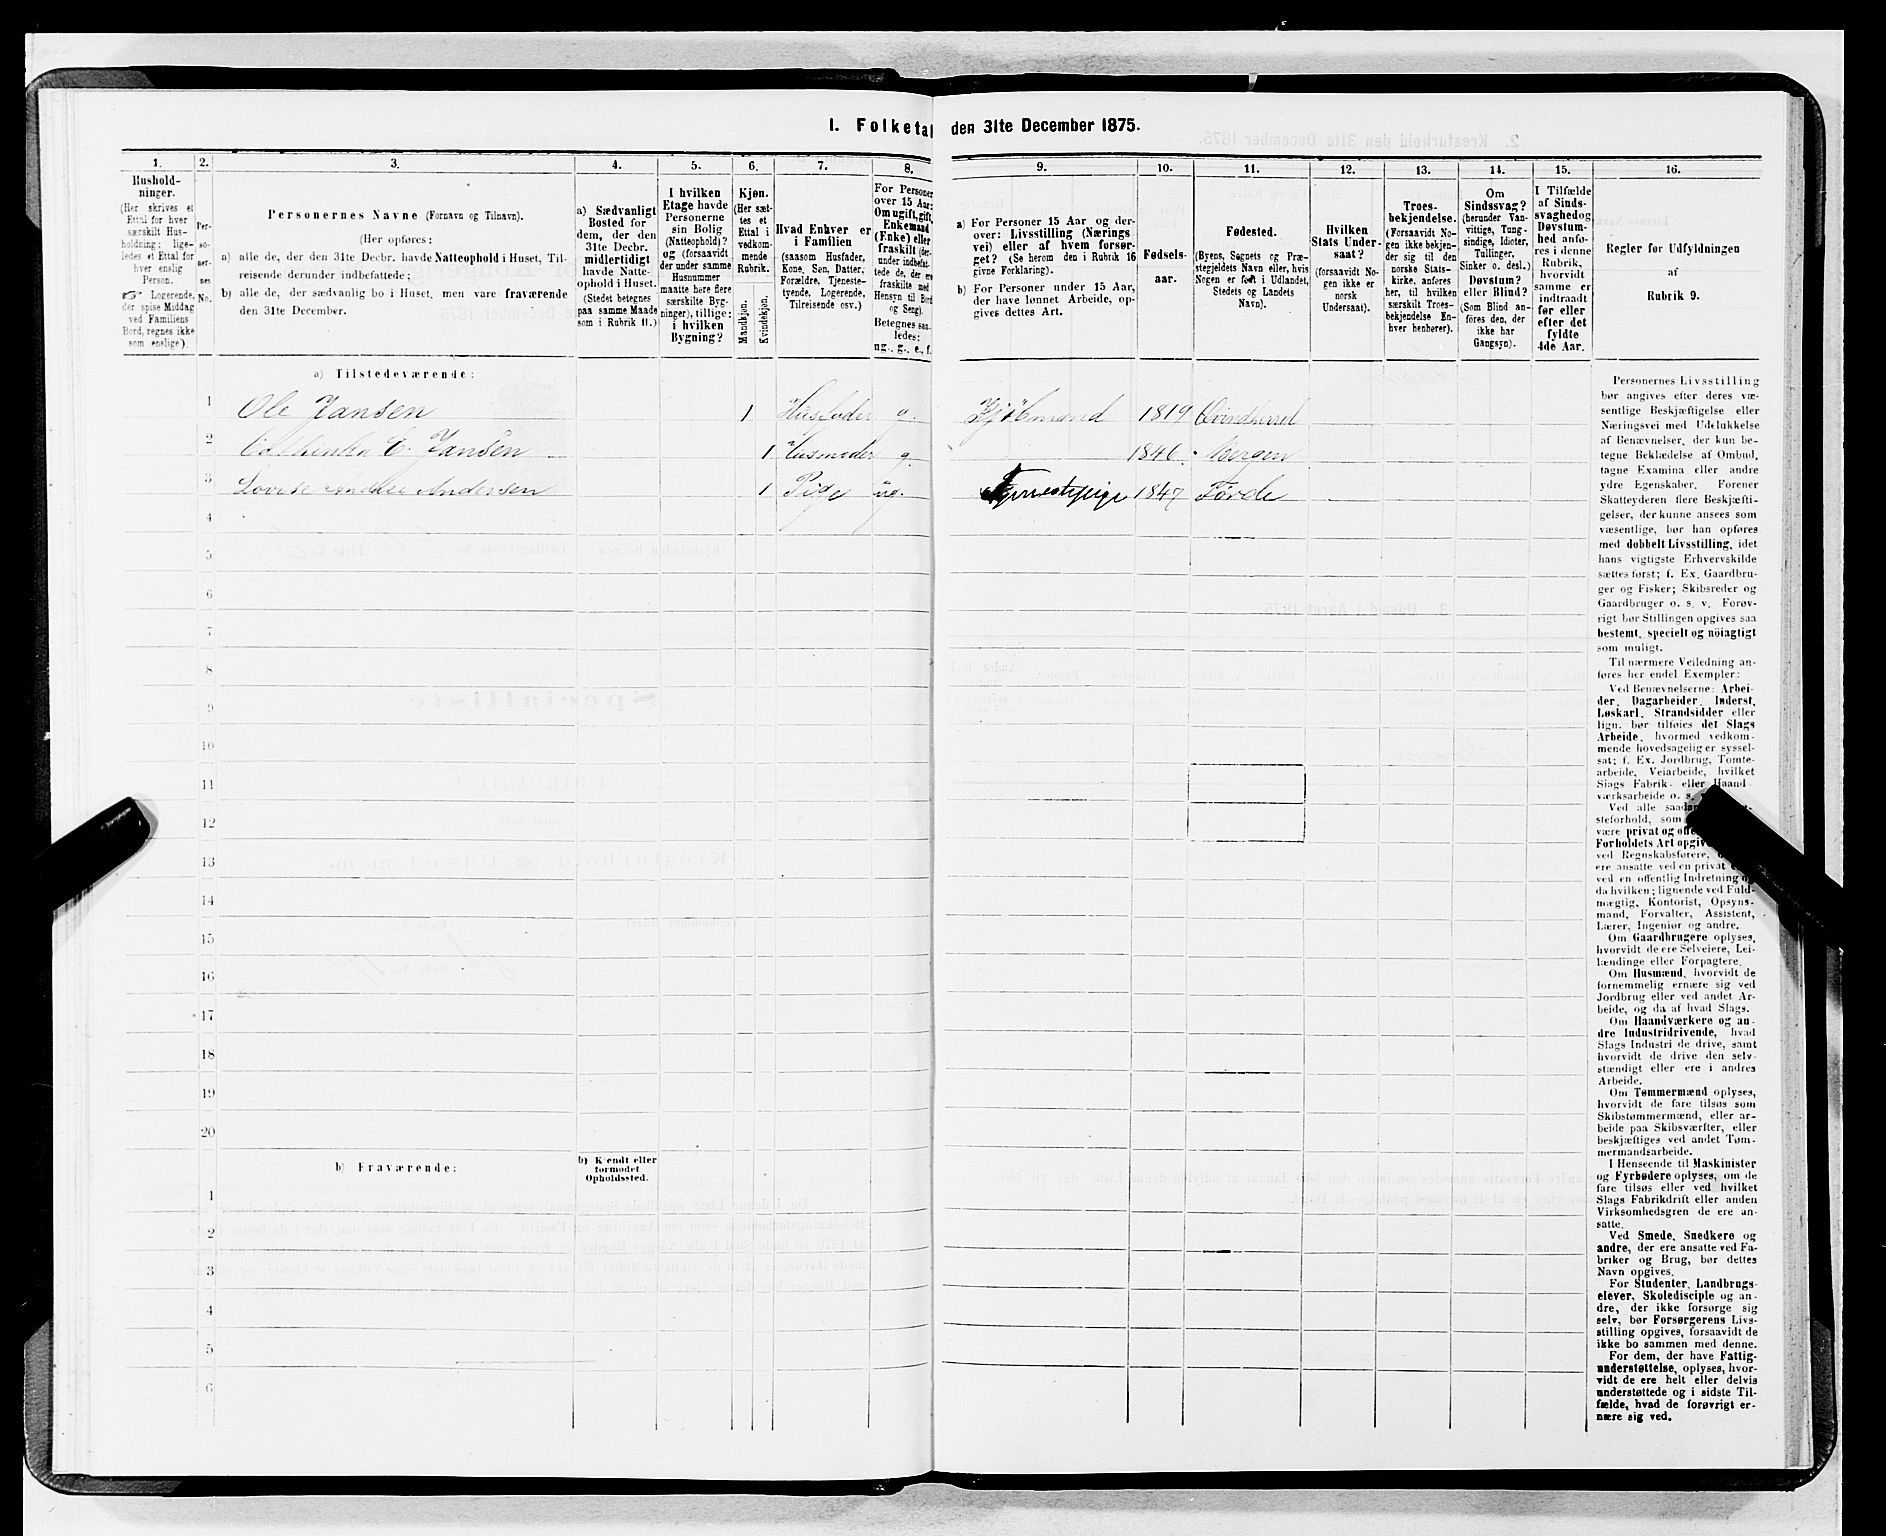 I. Folketal den 31te December 1875.
1.
2.
3.
4.
5.
6.
7.
8.
9.
10.
11.
12.
13.
14.
15.
16.
Hushold-
ninger.
(Her skrives et
Ettal for hver
særskilt Hus-
holdning; lige-
ledes et Ettal for
hver enslig
Person.
☞ Logerende,
der spise Middag
ved Familiens
Bord, regnes ikke
som enslige).
Per-
so-
ner-
nes
No.
Personernes Navne (Fornavn og Tilnavn).
(Her opføres:
a) alle de, der den 31te Decbr. havde Natteophold i Huset, Til-
reisende derunder indbefattede;
b) alle de, der sædvanlig bo i Huset, men vare fraværende
den 31te December.
a) Sædvanligt
Bosted for
dem, der den
31te Decbr.
midlertidigt
havde Natte-
ophold i Huset.
(Stedet betegnes
paa samme Maade
som i Rubrik 11.)
I hvilken
Etage havde
Personerne
sin Bolig
(Natteophold)?
og (forsaavidt
der under samme
Husnummer
maatte høre flere
særskilte Byg-
ninger), tillige:
i hvilken
Bygning?
Kjøn.
(Her sæt-
tes et
Ettal i
vedkom-
mende
Rubrik.
Mandkjøn.
Kvindekjøn.
Hvad Enhver er
i Familien
(saasom Husfader,
Kone, Søn, Datter,
Forældre, Tjeneste-
tyende, Logerende,
Tilreisende osv.)
For Personer
over 15 Aar:
Om ugift, gift,
Enkemand
(Enke) eller
fraskilt (der-
under indbefat-
tede de, der ere
fraskilte med
Hensyn til Bord
og Seng).
Betegnes saa-
ledes:
ug., g., e., f.
a) For Personer 15 Aar og der-
over: Livsstilling (Nærings
vei) eller af hvem forsør-
get? (Se herom den i Rubrik 16
givne Forklaring).
b) For Personer under 15 Aar,
der have lønnet Arbeide, op-
gives dettes Art.
Fødsels-
aar.
Fødested.
(Byens, Sognets og Præ-
stegjeldets Navn eller, hvis
Nogen er født i Udlandet,
Stedets og Landets
Navn).
Hvilken
Stats Under-
saat?
(forsaavidt No-
gen ikke er
norsk
Undersaat).
Troes-
bekjendelse.
(Forsaavidt No-
gen ikke bekjen-
der sig til den
norske Stats-
kirke, anføres
her, til hvilken
særskilt Troes-
bekjendelse En-
hver henhører).
Om
Sindssvag?
(herunder Van-
vittige, Tung-
sindige, Idioter,
Tullinger,
Sinker o. desl.)
Døvstum?
eller Blind?
(Som Blind an-
føres den, der
ikke har
Gangsyn).
I Tilfælde
af Sinds-
svaghed og
Døvstum-
hed anfø-
res i denne
Rubrik,
hvorvidt
samme er
indtraadt
før eller
efter det
fyldte
4de Aar.
Regler for Udfyldningen
af
Rubrik 9.
a) Tilstedeværende:
1 Ole Jansen 1 Husfader g. Kjøbmand 1819 Qvindherred
2 C. Jansen 1 Husmoder g. 1846 Bergen
3 Lovise Andersen 1 Pige ug. Tjenestepige 1847 Førde
4
5
6
7
8
9
10
11
12
13
14
15
16
17
18
19
20
b) Fraværende:
b) Kjendt eller
formodet
Opholdssted.
1
2
3
4
5
6
Personernes Livsstilling
bør angives efter deres væ-
sentlige Beskjæftigelse eller
Næringsvei med Udelukkelse
af Benævnelser, der kun be-
tegne Beklædelse af Ombud,
tagne Examina eller andre
ydre Egenskaber. Forener
Skatteyderen flere Beskjæfti-
gelser, der kunne ansees som
væsentlige, bør han opføres
med dobbelt Livsstilling, idet
hans vigtigste Erhvervskilde
sættes først; f. Ex. Gaardbru-
ger og Fisker; Skibsreder og
Gaardbruger o. s. v. Forøv-
rigt bør Stillingen opgives saa
bestemt, specielt og nöiagtigt
som muligt.
Til nærmere Veiledning an-
føres her endel Exempler:
Ved Benævnelserne: Arbei-
der, Dagarbeider, Inderst,
Løskarl, Strandsidder eller
lign. bør tilføies det Slags
Arbeide, hvormed vedkom-
mende hovedsagelig er syssel-
sat; f. Ex. Jordbrug, Tomte-
arbeide, Veiarbeide, hvilket
Slags Fabrik- eller Haand-
værksarbeide o. s.
Ved alle
steforhold, som
være privat og
Forholdets Art
ved Regnskabsførere,
ere ansatte ved en privat
ved en offentlig Indretning
da hvilken; lignende ved Fuld-
mægtig, Kontorist, Opsyns-
mand, Forvalter, Assistent,
Lærer, Ingeniør og andre.
Om Gaardbrugere oplyses,
hvorvidt de ere Selveiere, Lei-
lændinge eller Forpagtere.
Om Husmænd, hvorvidt de
fornemmelig ernære sig ved
Jordbrug eller ved andet Ar-
beide, og da af hvad Slags.
Om Haandværkere og an-
dre Industridrivende, hvad
Slags Industri de drive, samt
hvorvidt de drive den selv-
stændigt eller ere i andres
Arbeide.
Om Tømmermænd oplyses,
hvorvidt de fare tilsøs som
Skibstømmermænd, eller ar-
beide paa Skibsværfter, eller
beskjæftiges ved andet Tøm-
mermandsarbeide.
I Henseende til Maskinister
og Fyrbødere oplyses, om de
fare tilsøs eller ved hvilket
Slags Fabrikdrift eller anden
Virksomhedsgren de ere an-
satte.
Ved Smede, Snedkere og
andre, der ere ansatte ved Fa-
briker og Brug, bør dettes
Navn opgives.
For Studenter, Landbrugs-
elever, Skoledisciple og an-
dre, der ikke forsørge sig
selv, bør Forsørgerens Livs-
stilling opgives, forsaavidt de
ikke bo sammen med denne.
For dem, der have Fattig-
understøttelse, oplyses, hvor-
vidt de ere helt eller delvis
understøttede og i sidste Til-
fælde, hvad de forøvrigt er-
nære sig ved.